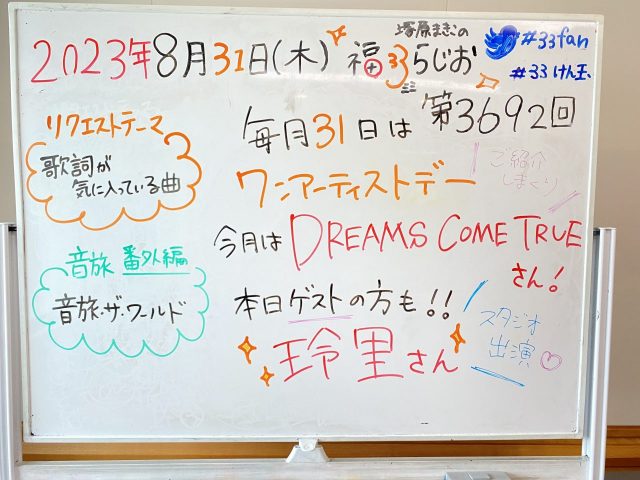 2023年8月31日(木)
塚原まきこの
福ろらじお
#33fan
#33けん玉
第3692回
リクエストテーマ
歌詞が
気に入っている曲
毎月31日は
ワンアーティストデー
ご紹介
しまくり
今月は DREAMS COME TRUE
さん!
音旅 番外編
音旅・ザ・ワールド
本日ゲストの方も!!
玲里さん
スタジオ
出演